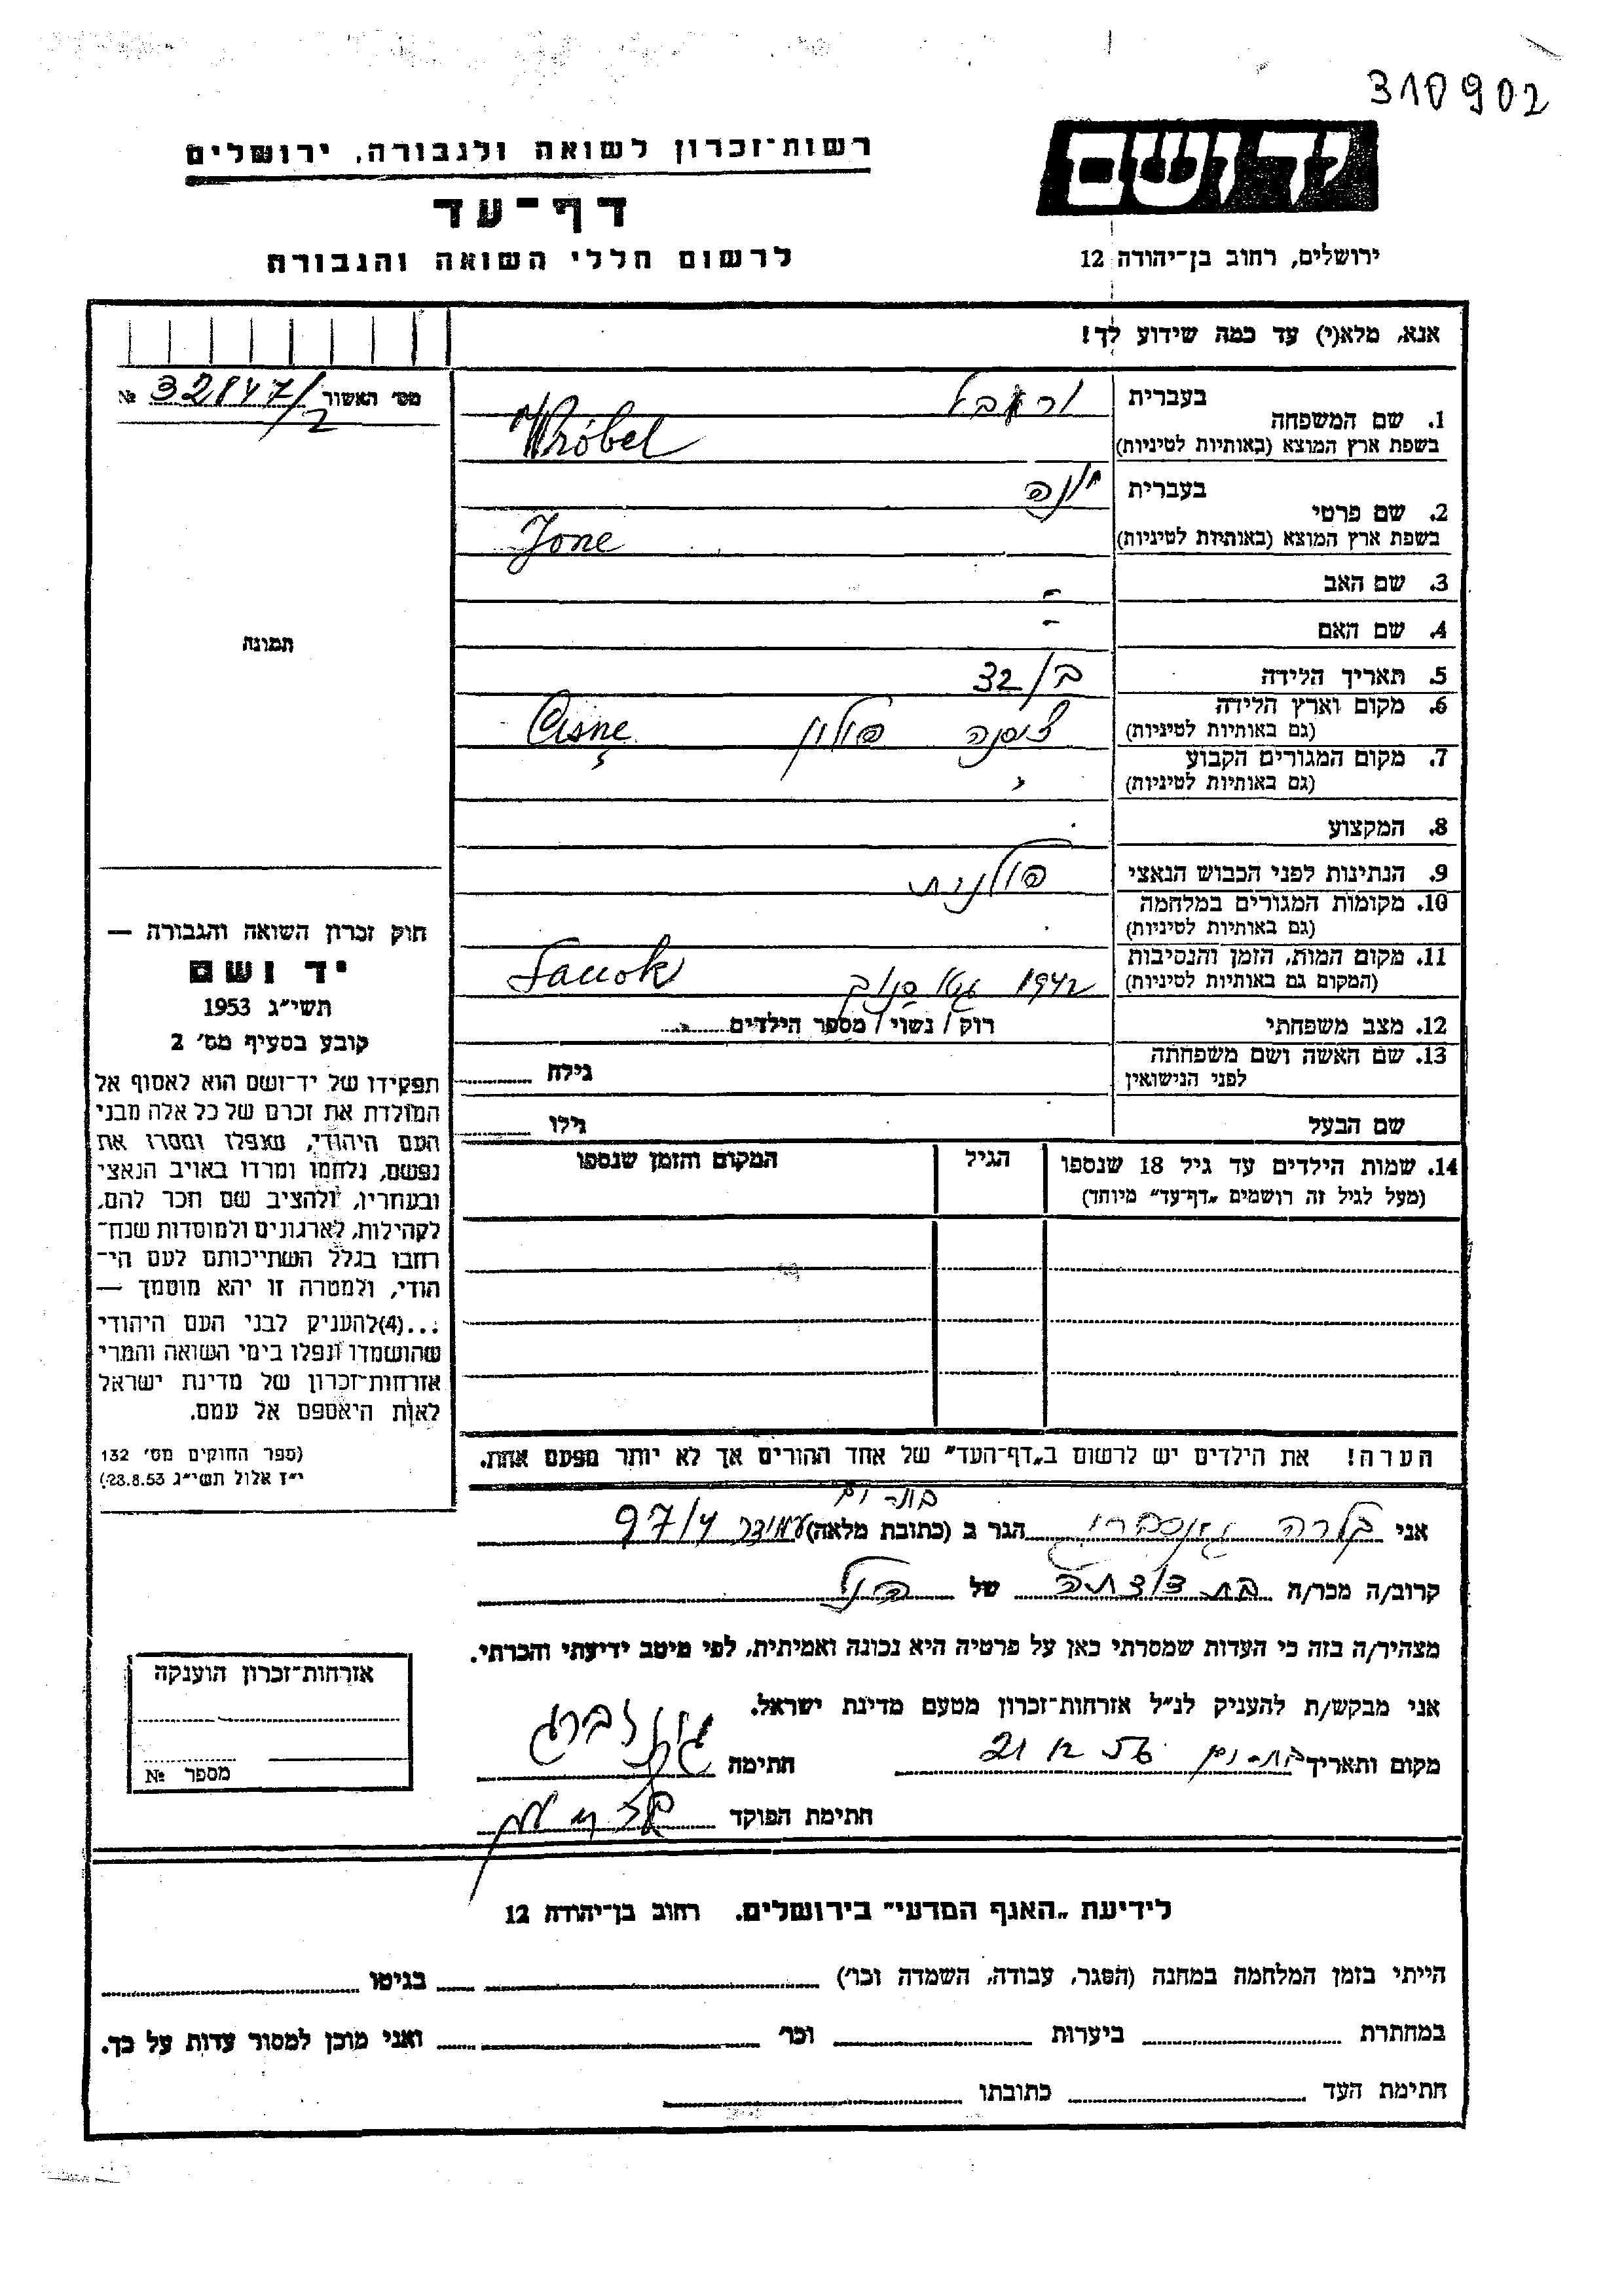 310902
יד ושם
רשות־זכרון לשואה ולגבורה, ירושלים
דף־עד
לרשום חללי השואה והגבורה
ירושלים, רחוב בן־יהודה 12
אנא, מלא(י) עד כמה שידוע לך!
מס׳ האשור 32847/2 №
בעברית
1. שם המשפחה
בשפת ארץ המוצא (באותיות לטיניות)
Wróbel
בעברית יונה
2. שם פרטי
בשפת ארץ המוצא (באותיות לטיניות)
Jone
3. שם האב -
4. שם האם -
5. תאריך הלידה ב/32
6. מקום וארץ הלידה
(גם באותיות לטיניות)
צ׳סנה פולין Cisnę
7. מקום המגורים הקבוע
(גם באותיות לטיניות)
8. המקצוע
9. הנתינות לפני הכבוש הנאצי פולנית
10. מקומות המגורים במלחמה
(גם באותיות לטיניות)
11. מקום המות, הזמן והנסיבות
(המקום גם באותיות לטיניות)
1942 גטו סנוק Sanok
12. מצב משפחתי רוק / נשוי / מספר הילדים
13. שם האשה ושם משפחתה
לפני הנישואין
גילה
שם הבעל גילו
14. שמות הילדים עד גיל 18 שנספו
(מעל לגיל זה רושמים „דף־עד״ מיוחד)
הגיל
המקום והזמן שנספו
הערה! את הילדים יש לרשום ב„דף־העד״ של אחד ההורים אך לא יותר מפעם אחת.
תמונה
חוק זכרון השואה והגבורה —
יד ושם
תשי״ג 1953
קובע בסעיף מס׳ 2
תפקידו של יד־ושם הוא לאסוף אל
המולדת את זכרם של כל אלה מבני
העם היהודי, שנפלו ומסרו את
נפשם, נלחמו ומרדו באויב הנאצי
ובעוזריו, ולהציב שם וזכר להם,
לקהילות, לארגונים ולמוסדות שנח־
רבו בגלל השתייכותם לעם הי־
הודי, ולמטרה זו יהא מוסמך —
...(4)להעניק לבני העם היהודי
שהושמדו ונפלו בימי השואה והמרי
אזרחות־זכרון של מדינת ישראל
לאות היאספם אל עמם.
(ספר החוקים מס׳ 132
י״ז אלול תשי״ג 28.8.53)
בת-ים
אני הגר ב (כתובת מלאה) 97/4
קרוב/ה מכר/ה בת דודתה של הנ״ל
מצהיר/ה בזה כי העדות שמסרתי כאן על פרטיה היא נכונה ואמיתית, לפי מיטב ידיעתי והכרתי.
אני מבקש/ת להעניק לנ״ל אזרחות־זכרון מטעם מדינת ישראל.
מקום ותאריך בת-ים חתימה
חתימת הפוקד
אזרחות־זכרון הוענקה
מספר №
לידיעת „האגף המדעי״ בירושלים. רחוב בן־יהודה 12
הייתי בזמן המלחמה במחנה (הסגר, עבודה, השמדה וכו׳) בגיטו
במחתרת ביערות וכו׳ ואני מוכן למסור עדות על כך.
חתימת העד כתובתו